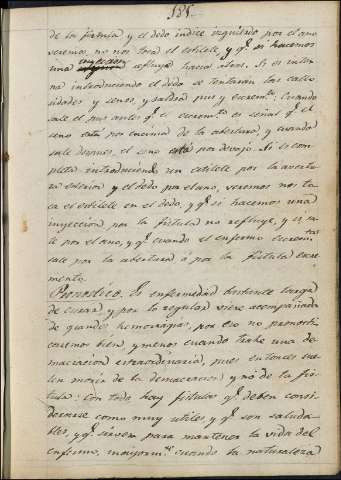 121.
de la fistula y el dedo indice izquierdo por el ano
veremos, no nos toca el estilete, y q.e si hacemos
una inyeccion refluye hacia atras. Si es inter
na introduciendo el dedo se tentaran las callo
sidades y senos, y saldra pus y excrem.to: Cuando
sale el pus antes q.e el excrem.to es señal q.e el
seno está por encima de la abertura, y cuando
sale despues, el seno está por devajo. Si es com
pleta introduciendo un estilete por la avertu
ra esterior y el dedo por el ano, veremos nos to
ca el estilete en el dedo, y q.e si hacemos una
inyeccion por la fistula no refluye, y si sa
le por el ano, y q.e cuando el enfermo escrem.ta
sale por la abertura ó por la fistula escre
mento.
Pronostico. Es enfermedad bastante larga
de curar, y por lo regular viene acompañada
de grandes hemorragias, por eso no pronosti
caremos bien, y menos cuando trahe una de
macracion extraordinaria, pues entonces sue
len morir de la demacracion y no de la fis
tula: Con todo hay fistulas q.e deben consi
derarse como muy utiles y q.e son saluda
bles, y q.e sirven para mantener la vida del
enfermo, mayorm.te cuando la naturaleza